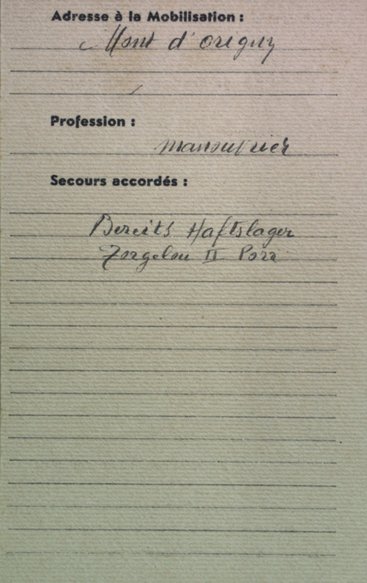 Adresse à la Mobilisation :
Mont d'origny
Profession :
manouvrier
Secours accordés :
Bereits Haftslager
Torgelou II Porr